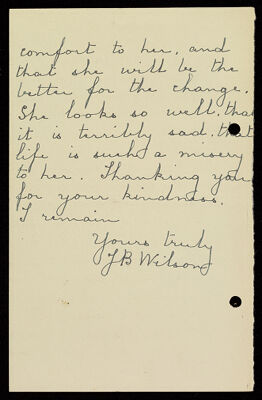 comfort to her, and
that she will be the
better for the change.
She looks so well, that
it is terribly sad, that
life is such a misery
to her. Thanking you
for your kindness.
I remain
Yours truly
J B Wilson